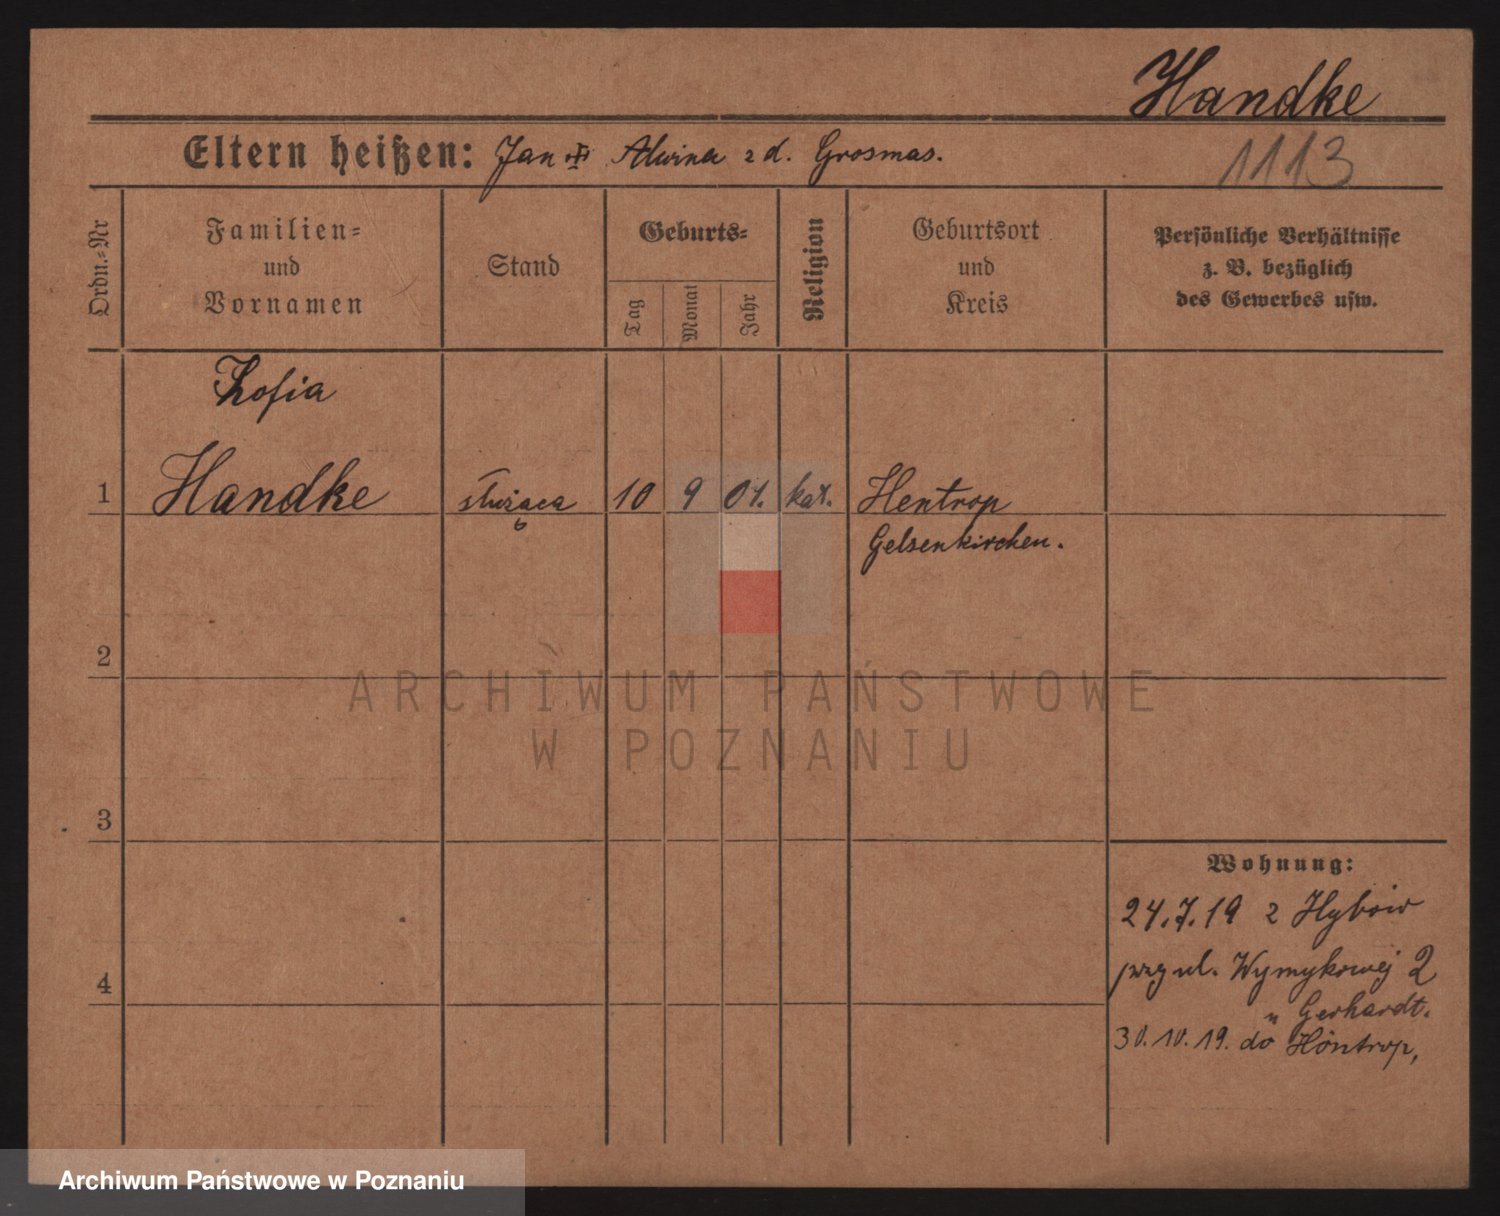 Handke
Eltern heißen: Jan Alwina z d. Grosmas.
1113
Ordn.-Nr
Familien-
und
Vornamen
Stand
Geburts-
Tag
Monat
Jahr
Religion
Geburtsort
und
Kreis
Persönliche Verhältnisse
z. B. bezüglich
des Gewerbes usw.
Zofia
1 Handke służąca 10 9 01. kat. Hentrop
Gelsenkirchen.
2
ARCHIWUM PAŃSTWOWE
W POZNANIU
3
Wohnung:
24.7.19 z Hybów
4
przy ul. Wymykowej 2
u Gerhardt.
30.10.19. do Höntrop,
Archiwum Państwowe w Poznaniu